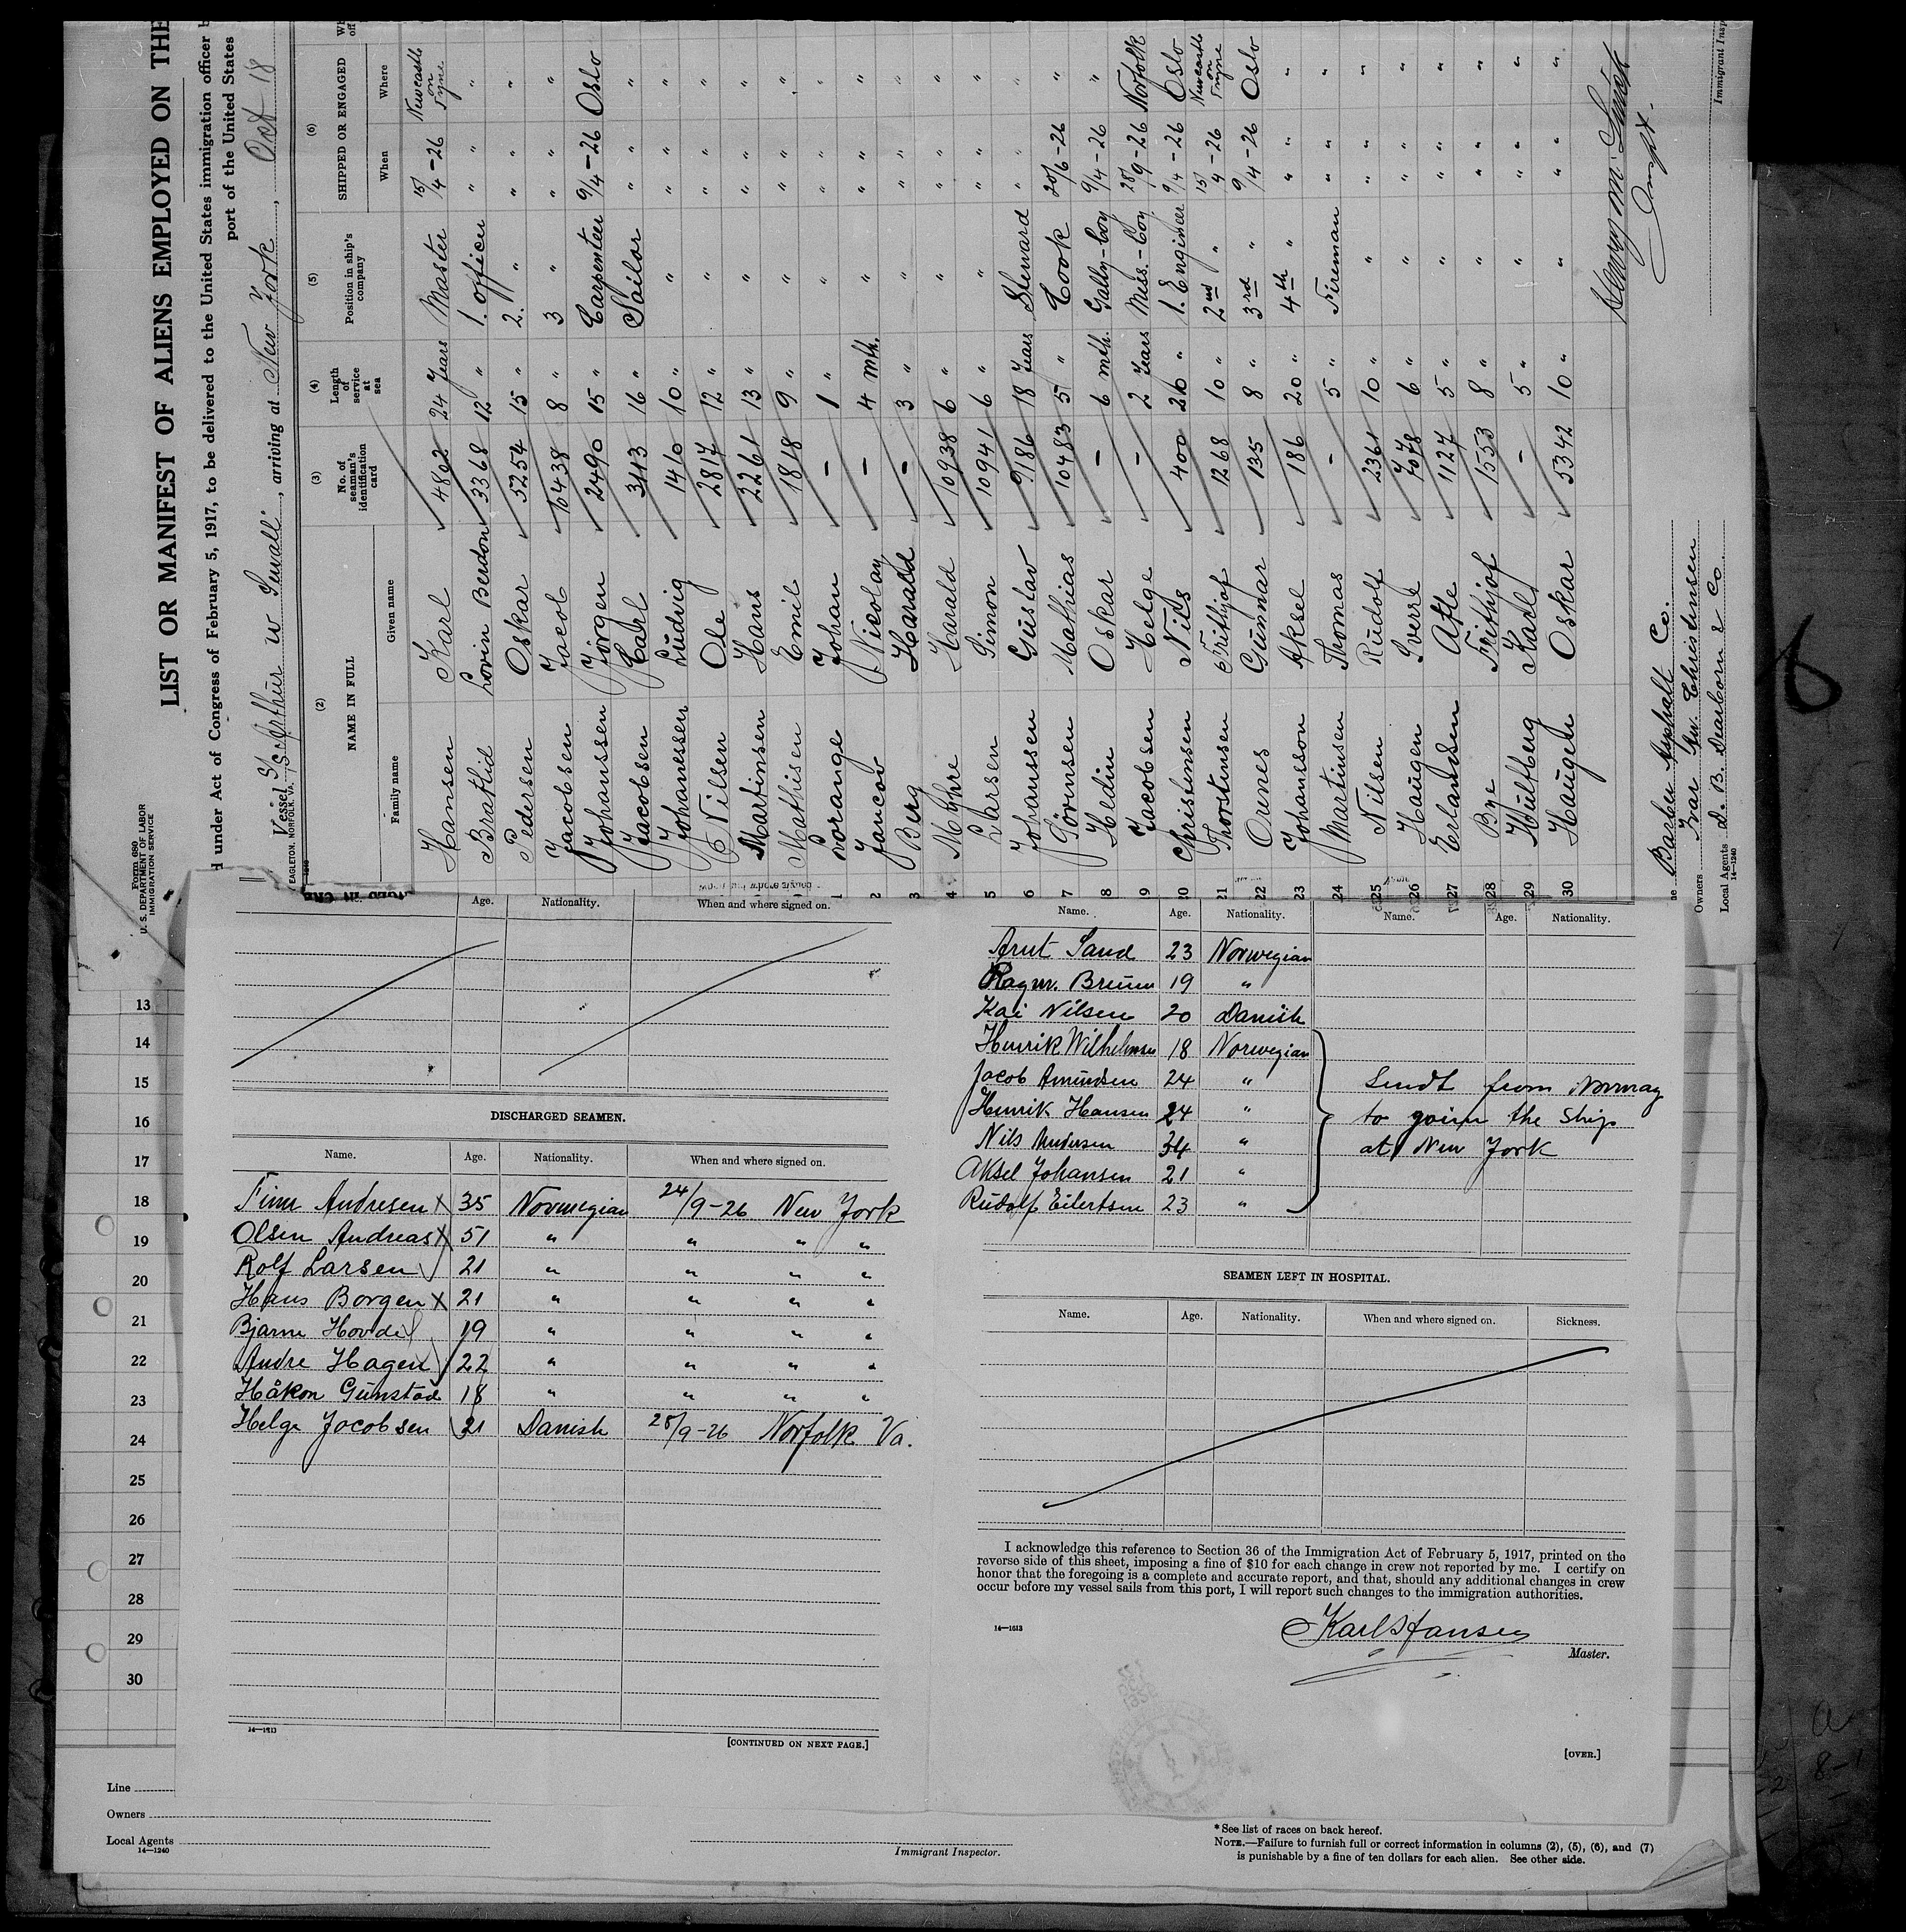 Form 680
U. S. DEPARTMENT OF LABOR
IMMIGRATION SERVICE
LIST OR MANIFEST OF ALIENS EMPLOYED ON THE
d under Act of Congress of February 5, 1917, to be delivered to the United States immigration officer
port of the United States
Vessel S/S. Arthur W Sewall, arriving at New York, Oct 18
EAGLETON, NORFOLK, VA.
(2) (3) (4) (5) (6)
NAME IN FULL No. of seaman's identification card Length of service at sea Position in ship's company SHIPPED OR ENGAGED
Family name Given name When Where
Hansen Karl 4802 24 Years Master 15/4-26 Newcastle on Tyne
Bratlid Lovin Berdon 3368 12 " 1. officer " "
Pedersen Oskar 5254 15 " 2. " " "
Jacobsen Jacob 10438 8 " 3 " " "
Johanssen Jörgen 2490 15 " Carpenteer 9/4-26 Oslo
Jacobsen Carl 3413 16 " Sailor " "
Johanessen Ludvig 1410 10 " " " "
Nilssen Ole 2817 12 " " " "
Martinsen Hans 2261 13 " " " "
Mathisen Emil 1818 9 " " " "
1 Lorange Johan - 1 " " " "
2 Jancov Nicolay - 4 mth. " " "
3 Berg Harald - 3 " " " "
4 Myhre Harald 10938 6 " " " "
5 Larsen Simon 10941 6 " " " "
6 Johanssen Gustav 9186 18 Years Steward " "
7 Sörensen Mathias 10483 5 " Cook 20/6-26 "
8 Heldin Oskar - 6 mth. Gally-boy 9/4-26 "
19 Jacobsen Helge - 2 Years Mess.-boy 28/9-26 Norfolk
20 Christinsen Nils 400 20 " 1. Engineer 9/4-26 Oslo
21 Thostinsen Frithjof 1268 10 " 2nd " 15/4-26 Newcastle on Tyne
22 Ornes Gunnar 135 8 " 3rd " 9/4-26 Oslo
23 Johansson Aksel 186 20 " 4th " " "
24 Martinsen Thomas - 5 " Fireman " "
25 Nilsen Rudolf 2361 10 " " " "
26 Haugen Sverre 7078 6 " " " "
27 Erlandsen Atle 1127 5 " " " "
28 Bye Frithjof 1553 8 " " " "
29 Hultberg Karl - 5 " " " "
30 Haugen Oskar 5342 10 " " " "
Barber Asphalt Co.
Owners Ivar An. Christensen
Local Agents D. B. Dearborn & Co.
14—1240
Inspt.
Immigrant Insp
Age. Nationality. When and where signed on.
DISCHARGED SEAMEN.
Name. Age. Nationality. When and where signed on.
Finn Andresen X 35 Norwegian 24/9-26 New York
Olsen Andreas X 51 " " " "
Rolf Larsen 21 " " " "
Hans Borgen X 21 " " " "
Bjarne Hovde 19 " " " "
Andre Hagen 22 " " " "
Håkon Gunstad 18 " " " "
Helge Jacobsen 21 Danish 28/9-26 Norfolk Va.
14—1613
[CONTINUED ON NEXT PAGE.]
Name. Age. Nationality. Name. Age. Nationality.
Arnt Sand 23 Norwegian
Ragnv. Bruun 19 "
Kai Nilsen 20 Danish
Henrik Wilhelmsen 18 Norwegian
Jacob Amundsen 24 " Sendt from Norway
Henrik Hansen 24 " to goinn the Ship
Nils Andersen 34 " at New York
Aksel Johansen 21 "
Rudolf Eilertsen 23 "
SEAMEN LEFT IN HOSPITAL.
Name. Age. Nationality. When and where signed on. Sickness.
I acknowledge this reference to Section 36 of the Immigration Act of February 5, 1917, printed on the
reverse side of this sheet, imposing a fine of $10 for each change in crew not reported by me. I certify on
honor that the foregoing is a complete and accurate report, and that, should any additional changes in crew
occur before my vessel sails from this port, I will report such changes to the immigration authorities.
14—1613
Karl Hansen
Master.
[OVER.]
13
14
15
16
17
18
19
20
21
22
23
24
25
26
27
28
29
30
Line
Owners
Local Agents
14—1240
Immigrant Inspector.
* See list of races on back hereof.
NOTE.—Failure to furnish full or correct information in columns (2), (5), (6), and (7)
is punishable by a fine of ten dollars for each alien. See other side.